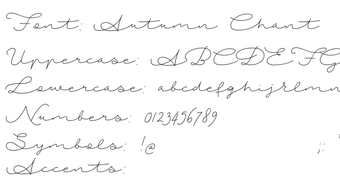 Font: Autumn Chant
Uppercase: ABCDEFG
Lowercase: abcdefghijklmn
Numbers: 0123456789
Symbols: !@ ;: '
Accents: